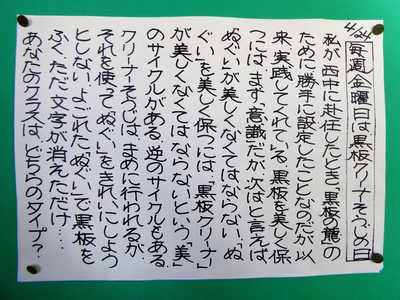 4/24
毎週金曜日は黒板クリーナそうじの日
私が西中に赴任したとき、「黒板の鑑」の
ために勝手に設定したことなのだが、以
来、実践してくれている。黒板を美しく保
つには、まず、意識だが、次はと言えば、
ぬぐいが美しくなくてはならない。「ぬ
ぐい」を美しく保つには、「黒板クリーナ」
が美しくなくてはならないという、「美」
のサイクルがある。逆のサイクルもある。
クリーナそうじは、まめに行われるが、
それを使って「ぬぐい」をきれいにしよう
としない。よごれた「ぬぐい」で黒板を
ふく。ただ文字が消えただけ・・・。
あなたのクラスは、どちらのタイプ？